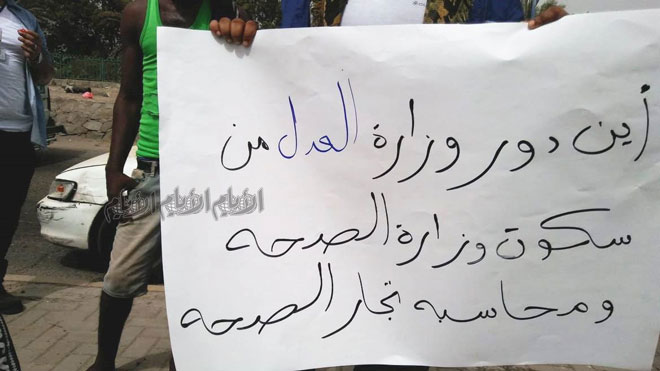 أين دور وزارة العدل من
سكوت وزارة الصحه
ومحاسبه تجار الصحه
الأيام الأيام الأيام